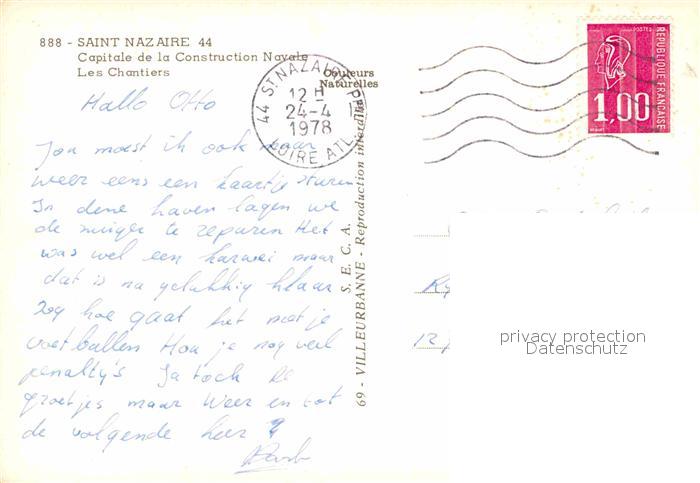 888 - SAINT NAZAIRE 44
Capitale de la Construction Navale
Les Chantiers
Couleurs
Naturelles
44 ST NAZAIRE
12 H
24-4
1978
LOIRE ATL.
POSTES
REPUBLIQUE FRANÇAISE
1,00
Hallo Otto
Jou moest ik ook maar
weer eens een kaartje sturen
In deze haven lagen we
de te reparen Het
was wel een karwei maar
dat is nu gelukkig klaar
Zeg hoe gaat het met je
voetballen Hou je nog veel
penalty's Ja toch
groetjes maar weer en tot
de volgende keer
S. E. C. A.
69 - VILLEURBANNE - Reproduction interdite
12
privacy protection
Datenschutz